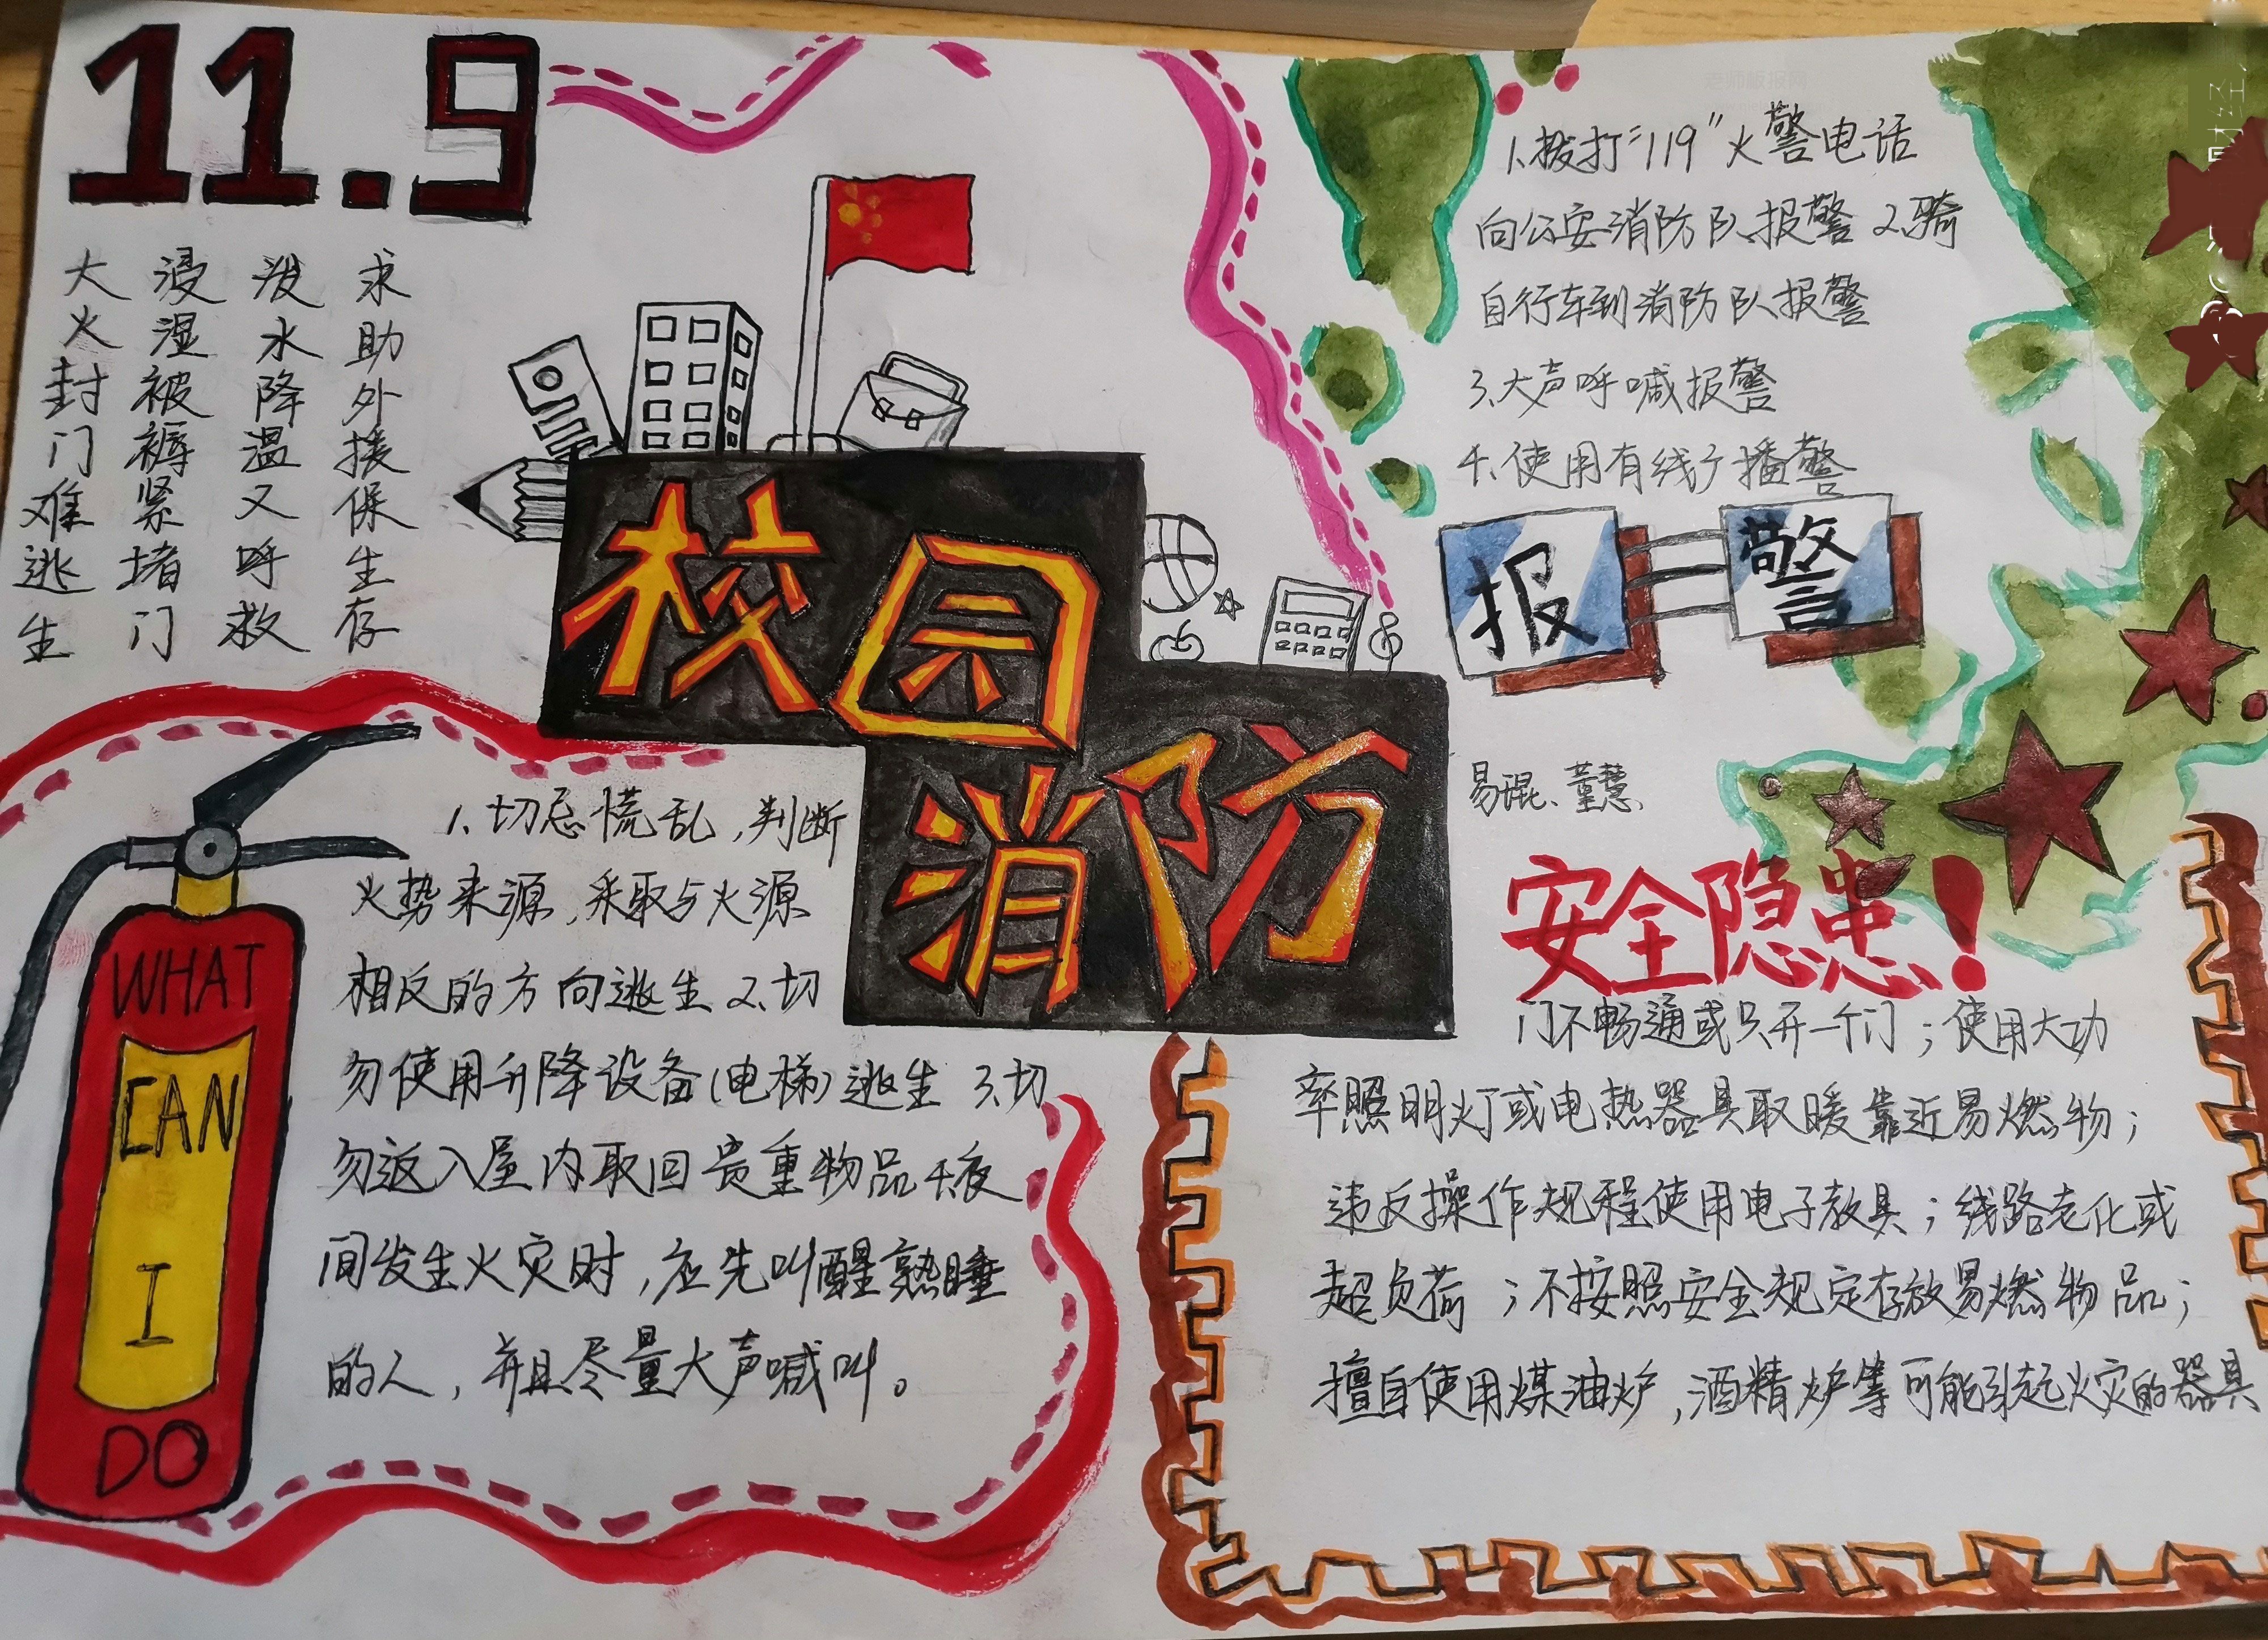 11.9
大火封门难逃生
浸湿被褥紧堵门
泼水降温又呼救
求助外援保生存
校园
消防
1.拨打“119”火警电话
向公安消防队报警 2.骑
自行车到消防队报警
3.大声呼喊报警
4.使用有线广播警
报警
易琨、董慧、
WHAT
CAN
I
DO
1.切忌慌乱,判断
火势来源,采取与火源
相反的方向逃生 2.切
勿使用升降设备(电梯)逃生 3.切
勿返入屋内取回贵重物品 4.夜
间发生火灾时,应先叫醒熟睡
的人,并且尽量大声喊叫。
安全隐患!
门不畅通或只开一个门;使用大功
率照明灯或电热器具取暖靠近易燃物;
违反操作规程使用电子教具;线路老化或
超负荷;不按照安全规定存放易燃物品;
擅自使用煤油炉,酒精炉等可能引起火灾的器具